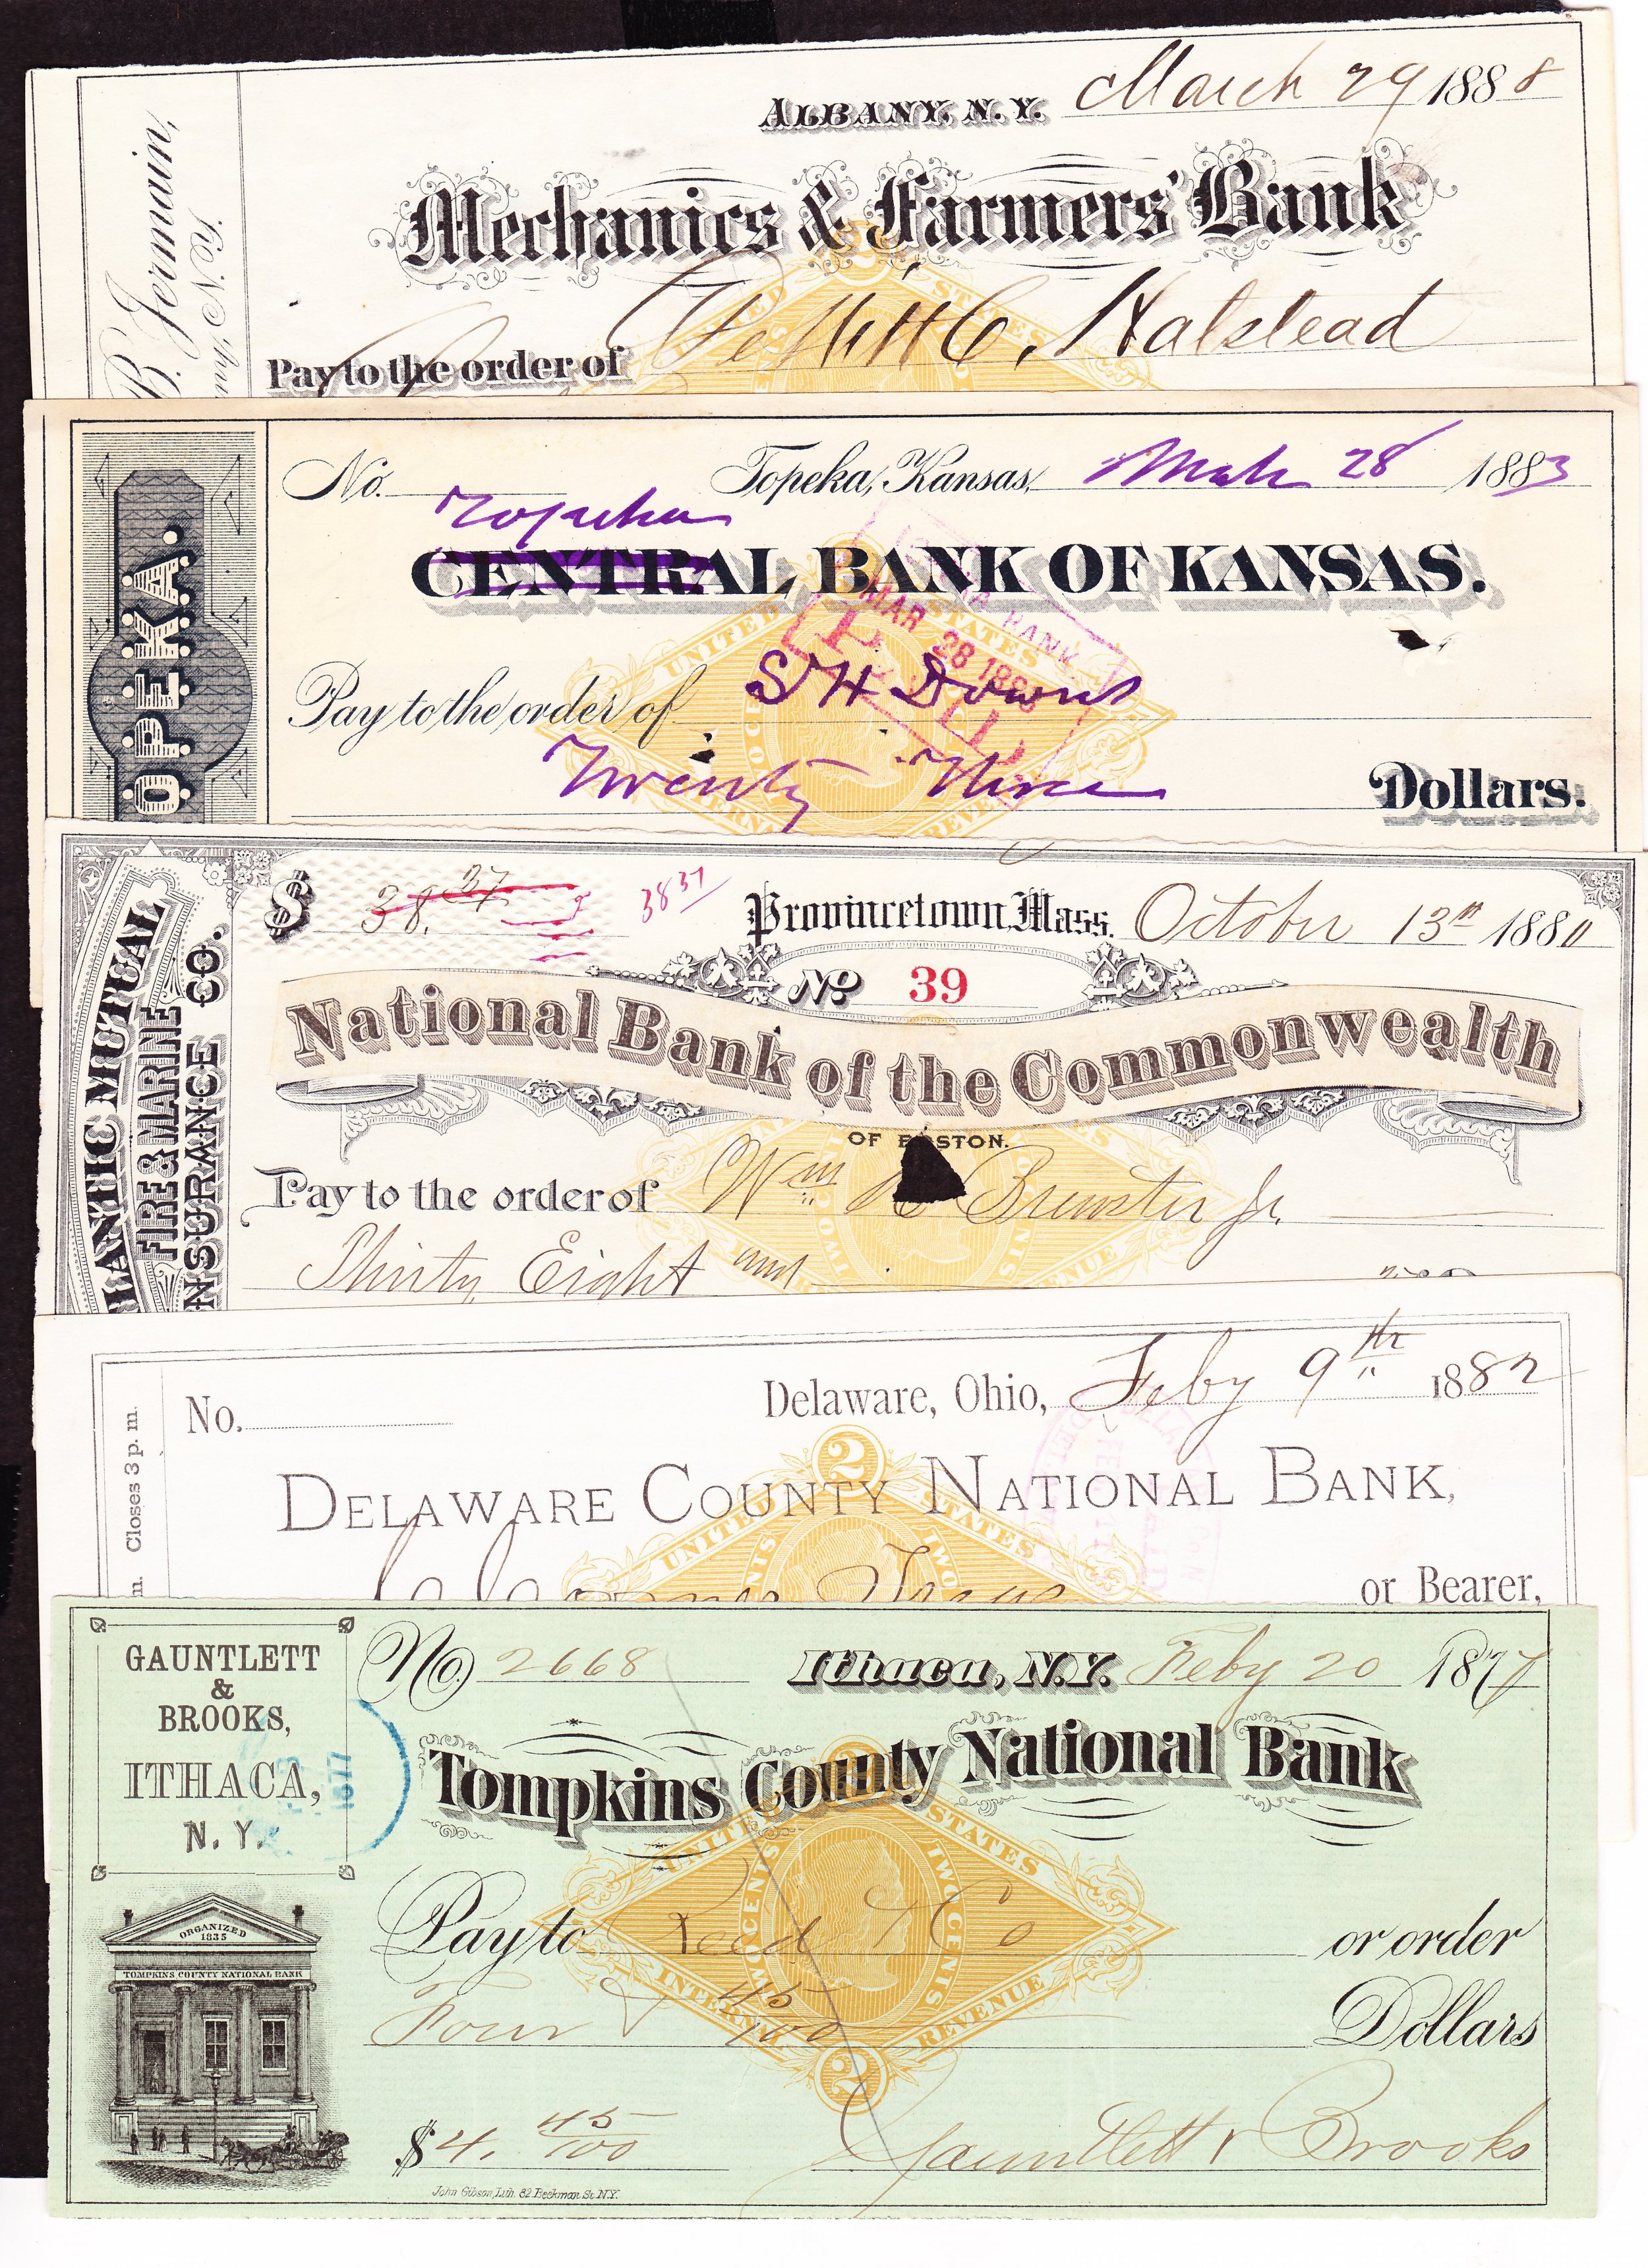 ALBANY, N.Y. March 29 1888
Mechanics & Farmers' Bank
Pay to the order of Halstead
B. Jermain,
N.Y.
No. Topeka, Kansas, Mch 28 1883
Topeka
CENTRAL BANK OF KANSAS.
BANK
MAR 28 188
UNITED STATES
Pay to the order of S H Downs
Twenty Three Dollars.
OPEKA.
$ 38.37 38 37 Provincetown, Mass. October 13th 1880
No 39
National Bank of the Commonwealth
OF BOSTON.
Pay to the order of Wm Brewster Jr.
Thirty Eight and
ANTIC MUTUAL
FIRE & MARINE
NSURANCE CO.
No. Delaware, Ohio, Feby 9th 1882
Closes 3 p. m.
DELAWARE COUNTY NATIONAL BANK,
2
UNITED STATES
CENTS TWO
or Bearer,
GAUNTLETT
&
BROOKS,
ITHACA,
N. Y.
1877
No. 2668 Ithaca, N.Y. Feby 20 1877
Tompkins County National Bank
UNITED STATES
TWO CENTS TWO CENTS
Pay to Reed & Co or order
Four & 45/100 Dollars
INTERNAL REVENUE
2
$4. 45/100 Gauntlett & Brooks
ORGANIZED
1835
TOMPKINS COUNTY NATIONAL BANK
John Gibson, Lith. 82 Beekman St. N.Y.